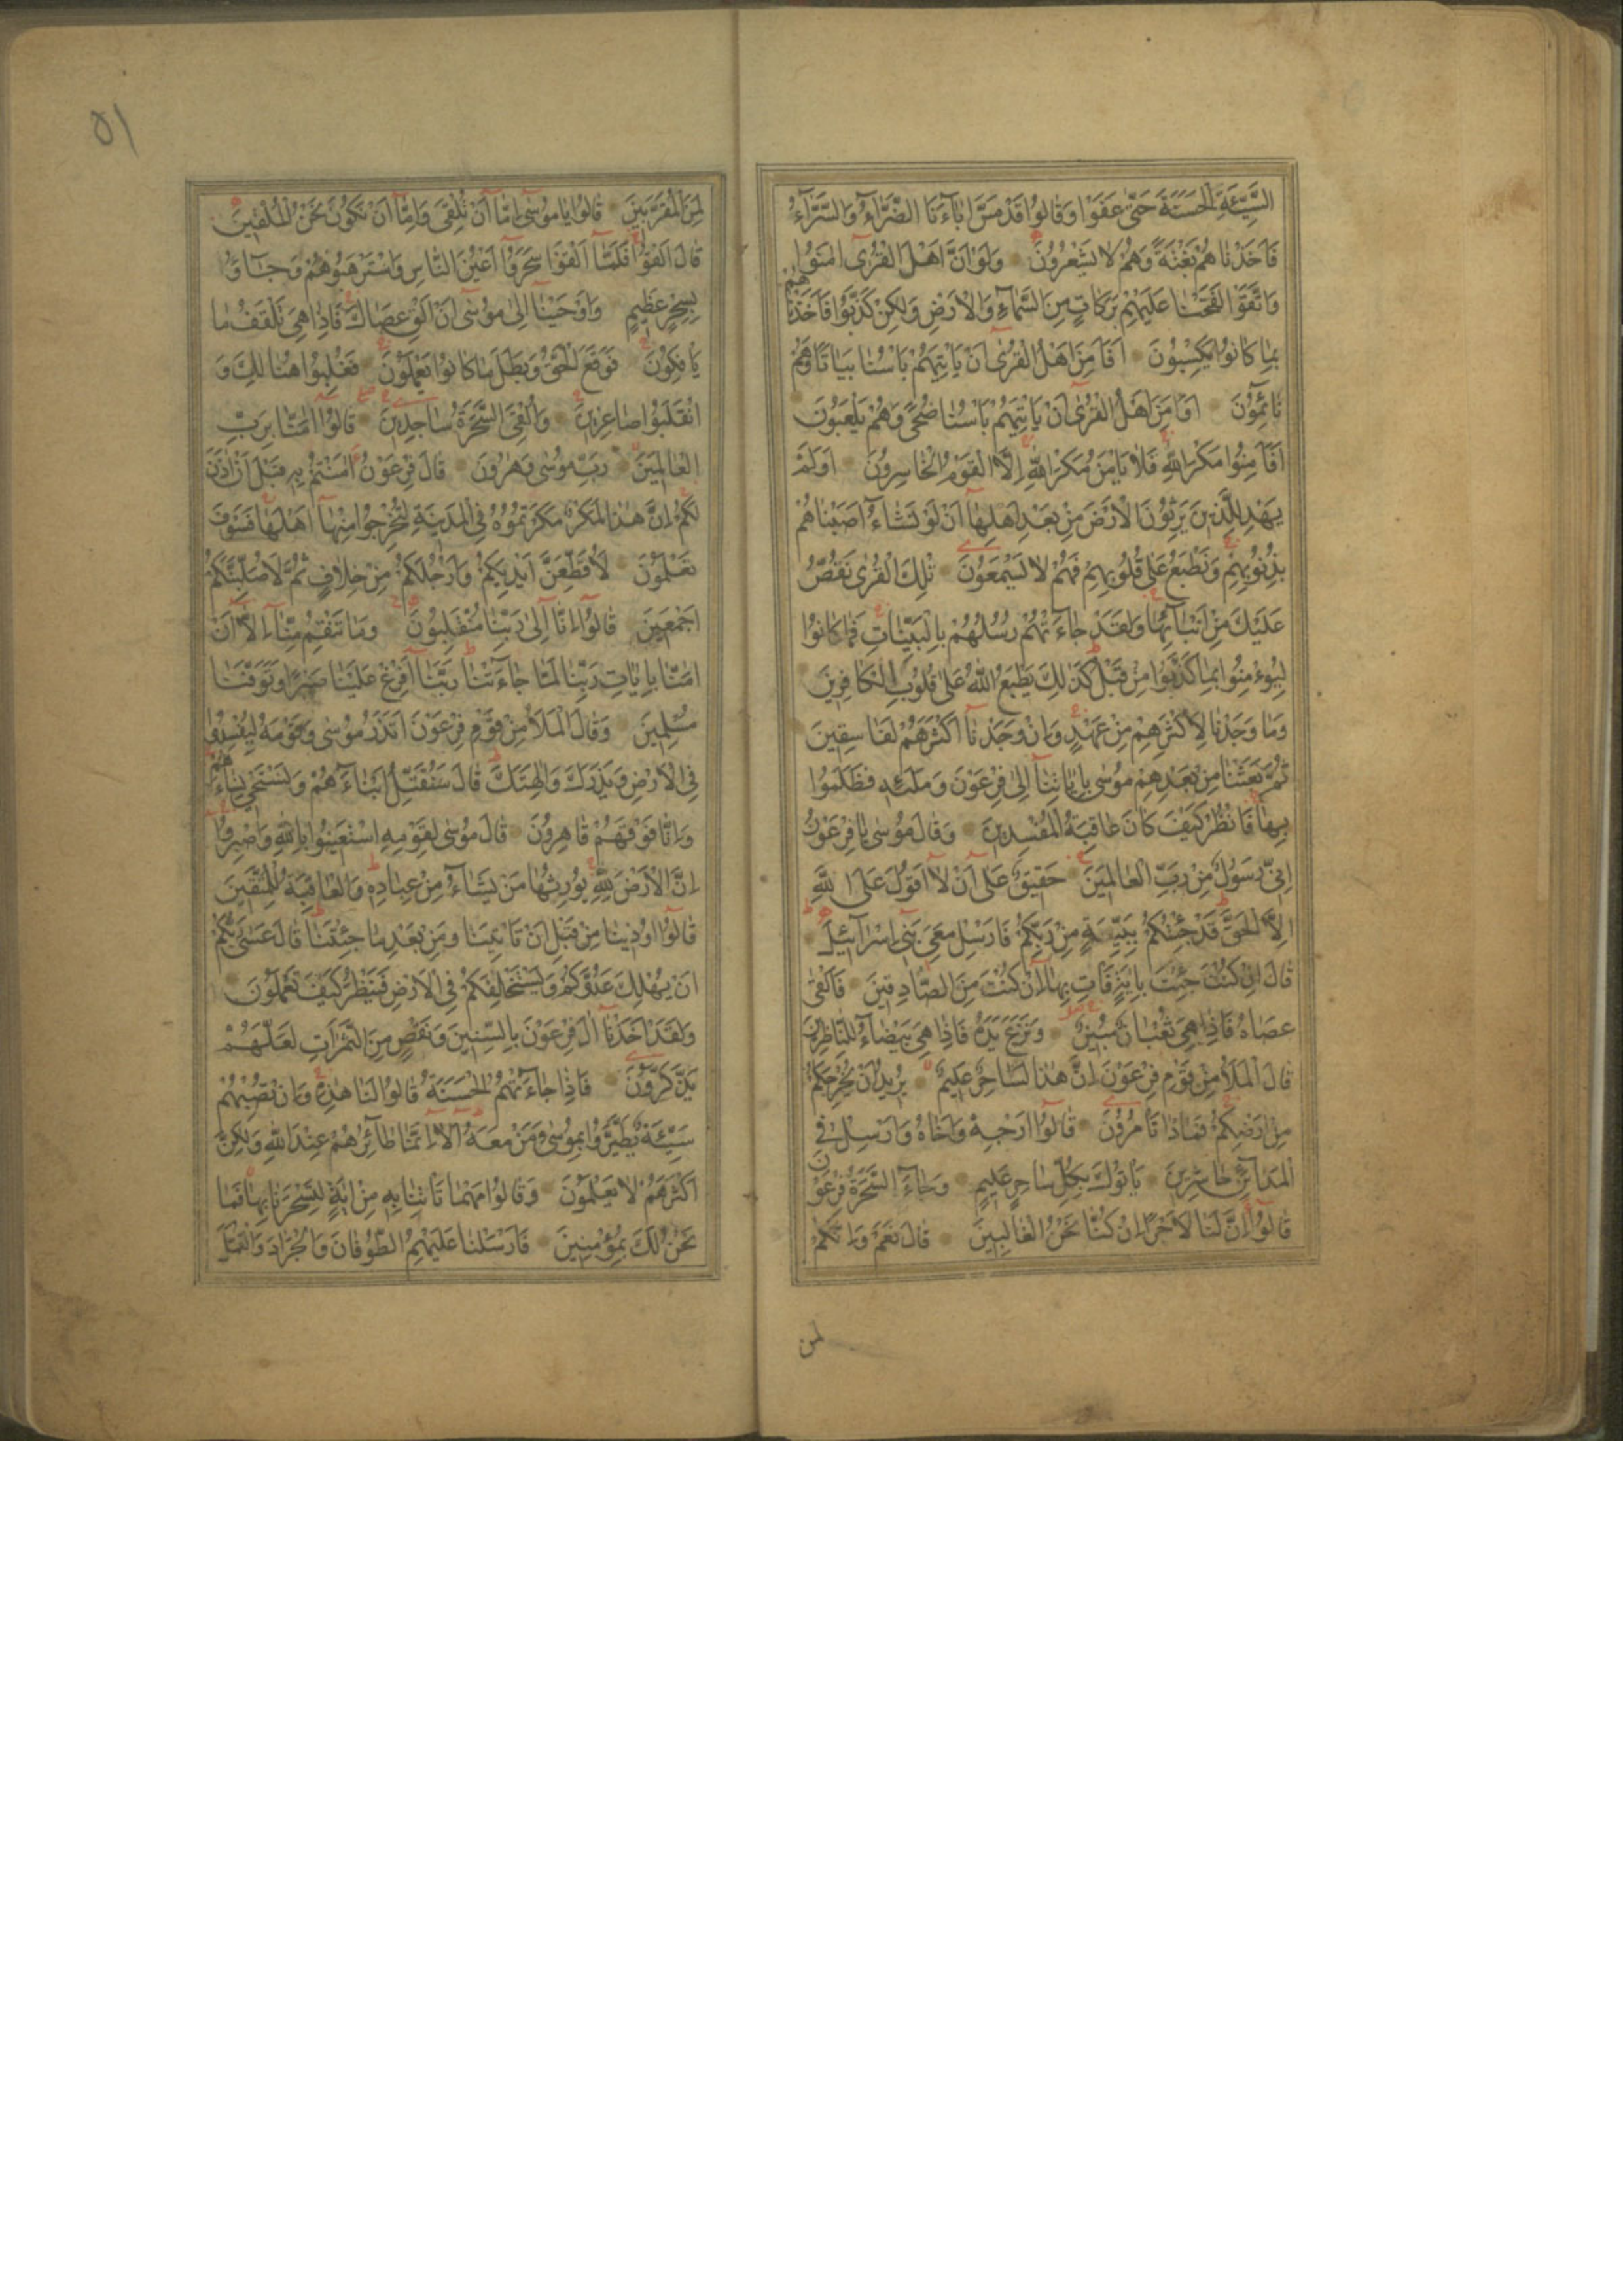 السَّيِّئَةِ الْحَسَنَةَ حَتّٰى عَفَوْا وَقَالُوا قَدْ مَسَّ اٰبَآءَنَا الضَّرَّآءُ وَالسَّرَّآءُ
فَاَخَذْنَاهُمْ بَغْتَةً وَهُمْ لَا يَشْعُرُونَ وَلَوْ اَنَّ اَهْلَ الْقُرٰٓى اٰمَنُوا
وَاتَّقَوْا لَفَتَحْنَا عَلَيْهِمْ بَرَكَاتٍ مِنَ السَّمَآءِ وَالْاَرْضِ وَلٰكِنْ كَذَّبُوا فَاَخَذْنَاهُمْ
بِمَا كَانُوا يَكْسِبُونَ اَفَاَمِنَ اَهْلُ الْقُرٰٓى اَنْ يَاْتِيَهُمْ بَاْسُنَا بَيَاتًا وَهُمْ
نَآئِمُونَ اَوَاَمِنَ اَهْلُ الْقُرٰٓى اَنْ يَاْتِيَهُمْ بَاْسُنَا ضُحًى وَهُمْ يَلْعَبُونَ
اَفَاَمِنُوا مَكْرَ اللّٰهِ فَلَا يَاْمَنُ مَكْرَ اللّٰهِ اِلَّا الْقَوْمُ الْخَاسِرُونَ اَوَلَمْ
يَهْدِ لِلَّذِينَ يَرِثُونَ الْاَرْضَ مِنْ بَعْدِ اَهْلِهَآ اَنْ لَوْ نَشَآءُ اَصَبْنَاهُمْ
بِذُنُوبِهِمْ وَنَطْبَعُ عَلٰى قُلُوبِهِمْ فَهُمْ لَا يَسْمَعُونَ تِلْكَ الْقُرٰى نَقُصُّ
عَلَيْكَ مِنْ اَنْبَآئِهَا وَلَقَدْ جَآءَتْهُمْ رُسُلُهُمْ بِالْبَيِّنَاتِ فَمَا كَانُوا
لِيُؤْمِنُوا بِمَا كَذَّبُوا مِنْ قَبْلُ كَذٰلِكَ يَطْبَعُ اللّٰهُ عَلٰى قُلُوبِ الْكَافِرِينَ
وَمَا وَجَدْنَا لِاَكْثَرِهِمْ مِنْ عَهْدٍ وَاِنْ وَجَدْنَآ اَكْثَرَهُمْ لَفَاسِقِينَ
ثُمَّ بَعَثْنَا مِنْ بَعْدِهِمْ مُوسٰى بِاٰيَاتِنَآ اِلٰى فِرْعَوْنَ وَمَلَئِهِ فَظَلَمُوا
بِهَا فَانْظُرْ كَيْفَ كَانَ عَاقِبَةُ الْمُفْسِدِينَ وَقَالَ مُوسٰى يَا فِرْعَوْنُ
اِنِّي رَسُولٌ مِنْ رَبِّ الْعَالَمِينَ حَقِيقٌ عَلٰٓى اَنْ لَآ اَقُولَ عَلَى اللّٰهِ
اِلَّا الْحَقَّ قَدْ جِئْتُكُمْ بِبَيِّنَةٍ مِنْ رَبِّكُمْ فَاَرْسِلْ مَعِيَ بَنِيٓ اِسْرَآئِيلَ
قَالَ اِنْ كُنْتَ جِئْتَ بِاٰيَةٍ فَاْتِ بِهَآ اِنْ كُنْتَ مِنَ الصَّادِقِينَ فَاَلْقٰى
عَصَاهُ فَاِذَا هِيَ ثُعْبَانٌ مُبِينٌ وَنَزَعَ يَدَهُ فَاِذَا هِيَ بَيْضَآءُ لِلنَّاظِرِينَ
قَالَ الْمَلَاُ مِنْ قَوْمِ فِرْعَوْنَ اِنَّ هٰذَا لَسَاحِرٌ عَلِيمٌ يُرِيدُ اَنْ يُخْرِجَكُمْ
مِنْ اَرْضِكُمْ فَمَاذَا تَاْمُرُونَ قَالُوٓا اَرْجِهْ وَاَخَاهُ وَاَرْسِلْ فِي
الْمَدَآئِنِ حَاشِرِينَ يَاْتُوكَ بِكُلِّ سَاحِرٍ عَلِيمٍ وَجَآءَ السَّحَرَةُ فِرْعَوْنَ
قَالُوٓا اِنَّ لَنَا لَاَجْرًا اِنْ كُنَّا نَحْنُ الْغَالِبِينَ قَالَ نَعَمْ وَاِنَّكُمْ
لمن
٥١
لَمِنَ الْمُقَرَّبِينَ قَالُوا يَا مُوسٰٓى اِمَّآ اَنْ تُلْقِيَ وَاِمَّآ اَنْ نَكُونَ نَحْنُ الْمُلْقِينَ
قَالَ اَلْقُوا فَلَمَّآ اَلْقَوْا سَحَرُوٓا اَعْيُنَ النَّاسِ وَاسْتَرْهَبُوهُمْ وَجَآؤُ
بِسِحْرٍ عَظِيمٍ وَاَوْحَيْنَآ اِلٰى مُوسٰٓى اَنْ اَلْقِ عَصَاكَ فَاِذَا هِيَ تَلْقَفُ مَا
يَاْفِكُونَ فَوَقَعَ الْحَقُّ وَبَطَلَ مَا كَانُوا يَعْمَلُونَ فَغُلِبُوا هُنَالِكَ وَ
انْقَلَبُوا صَاغِرِينَ وَاُلْقِيَ السَّحَرَةُ سَاجِدِينَ قَالُوٓا اٰمَنَّا بِرَبِّ
الْعَالَمِينَ رَبِّ مُوسٰى وَهٰرُونَ قَالَ فِرْعَوْنُ اٰمَنْتُمْ بِهِ قَبْلَ اَنْ اٰذَنَ
لَكُمْ اِنَّ هٰذَا لَمَكْرٌ مَكَرْتُمُوهُ فِي الْمَدِينَةِ لِتُخْرِجُوا مِنْهَآ اَهْلَهَا فَسَوْفَ
تَعْلَمُونَ لَاُقَطِّعَنَّ اَيْدِيَكُمْ وَاَرْجُلَكُمْ مِنْ خِلَافٍ ثُمَّ لَاُصَلِّبَنَّكُمْ
اَجْمَعِينَ قَالُوٓا اِنَّآ اِلٰى رَبِّنَا مُنْقَلِبُونَ وَمَا تَنْقِمُ مِنَّآ اِلَّآ اَنْ
اٰمَنَّا بِاٰيَاتِ رَبِّنَا لَمَّا جَآءَتْنَا رَبَّنَآ اَفْرِغْ عَلَيْنَا صَبْرًا وَتَوَفَّنَا
مُسْلِمِينَ وَقَالَ الْمَلَاُ مِنْ قَوْمِ فِرْعَوْنَ اَتَذَرُ مُوسٰى وَقَوْمَهُ لِيُفْسِدُوا
فِي الْاَرْضِ وَيَذَرَكَ وَاٰلِهَتَكَ قَالَ سَنُقَتِّلُ اَبْنَآءَهُمْ وَنَسْتَحْيِي نِسَآءَهُمْ
وَاِنَّا فَوْقَهُمْ قَاهِرُونَ قَالَ مُوسٰى لِقَوْمِهِ اسْتَعِينُوا بِاللّٰهِ وَاصْبِرُوا
اِنَّ الْاَرْضَ لِلّٰهِ يُورِثُهَا مَنْ يَشَآءُ مِنْ عِبَادِهِ وَالْعَاقِبَةُ لِلْمُتَّقِينَ
قَالُوٓا اُوذِينَا مِنْ قَبْلِ اَنْ تَاْتِيَنَا وَمِنْ بَعْدِ مَا جِئْتَنَا قَالَ عَسٰى رَبُّكُمْ
اَنْ يُهْلِكَ عَدُوَّكُمْ وَيَسْتَخْلِفَكُمْ فِي الْاَرْضِ فَيَنْظُرَ كَيْفَ تَعْمَلُونَ
وَلَقَدْ اَخَذْنَآ اٰلَ فِرْعَوْنَ بِالسِّنِينَ وَنَقْصٍ مِنَ الثَّمَرَاتِ لَعَلَّهُمْ
يَذَّكَّرُونَ فَاِذَا جَآءَتْهُمُ الْحَسَنَةُ قَالُوا لَنَا هٰذِهِ وَاِنْ تُصِبْهُمْ
سَيِّئَةٌ يَطَّيَّرُوا بِمُوسٰى وَمَنْ مَعَهُ اَلَآ اِنَّمَا طَآئِرُهُمْ عِنْدَ اللّٰهِ وَلٰكِنَّ
اَكْثَرَهُمْ لَا يَعْلَمُونَ وَقَالُوا مَهْمَا تَاْتِنَا بِهِ مِنْ اٰيَةٍ لِتَسْحَرَنَا بِهَا فَمَا
نَحْنُ لَكَ بِمُؤْمِنِينَ فَاَرْسَلْنَا عَلَيْهِمُ الطُّوفَانَ وَالْجَرَادَ وَالْقُمَّلَ